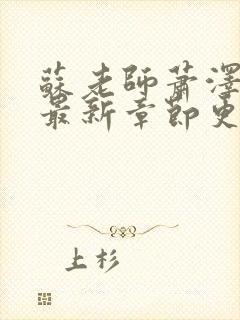 蘇老師蕭澤
最新章節更
上杉